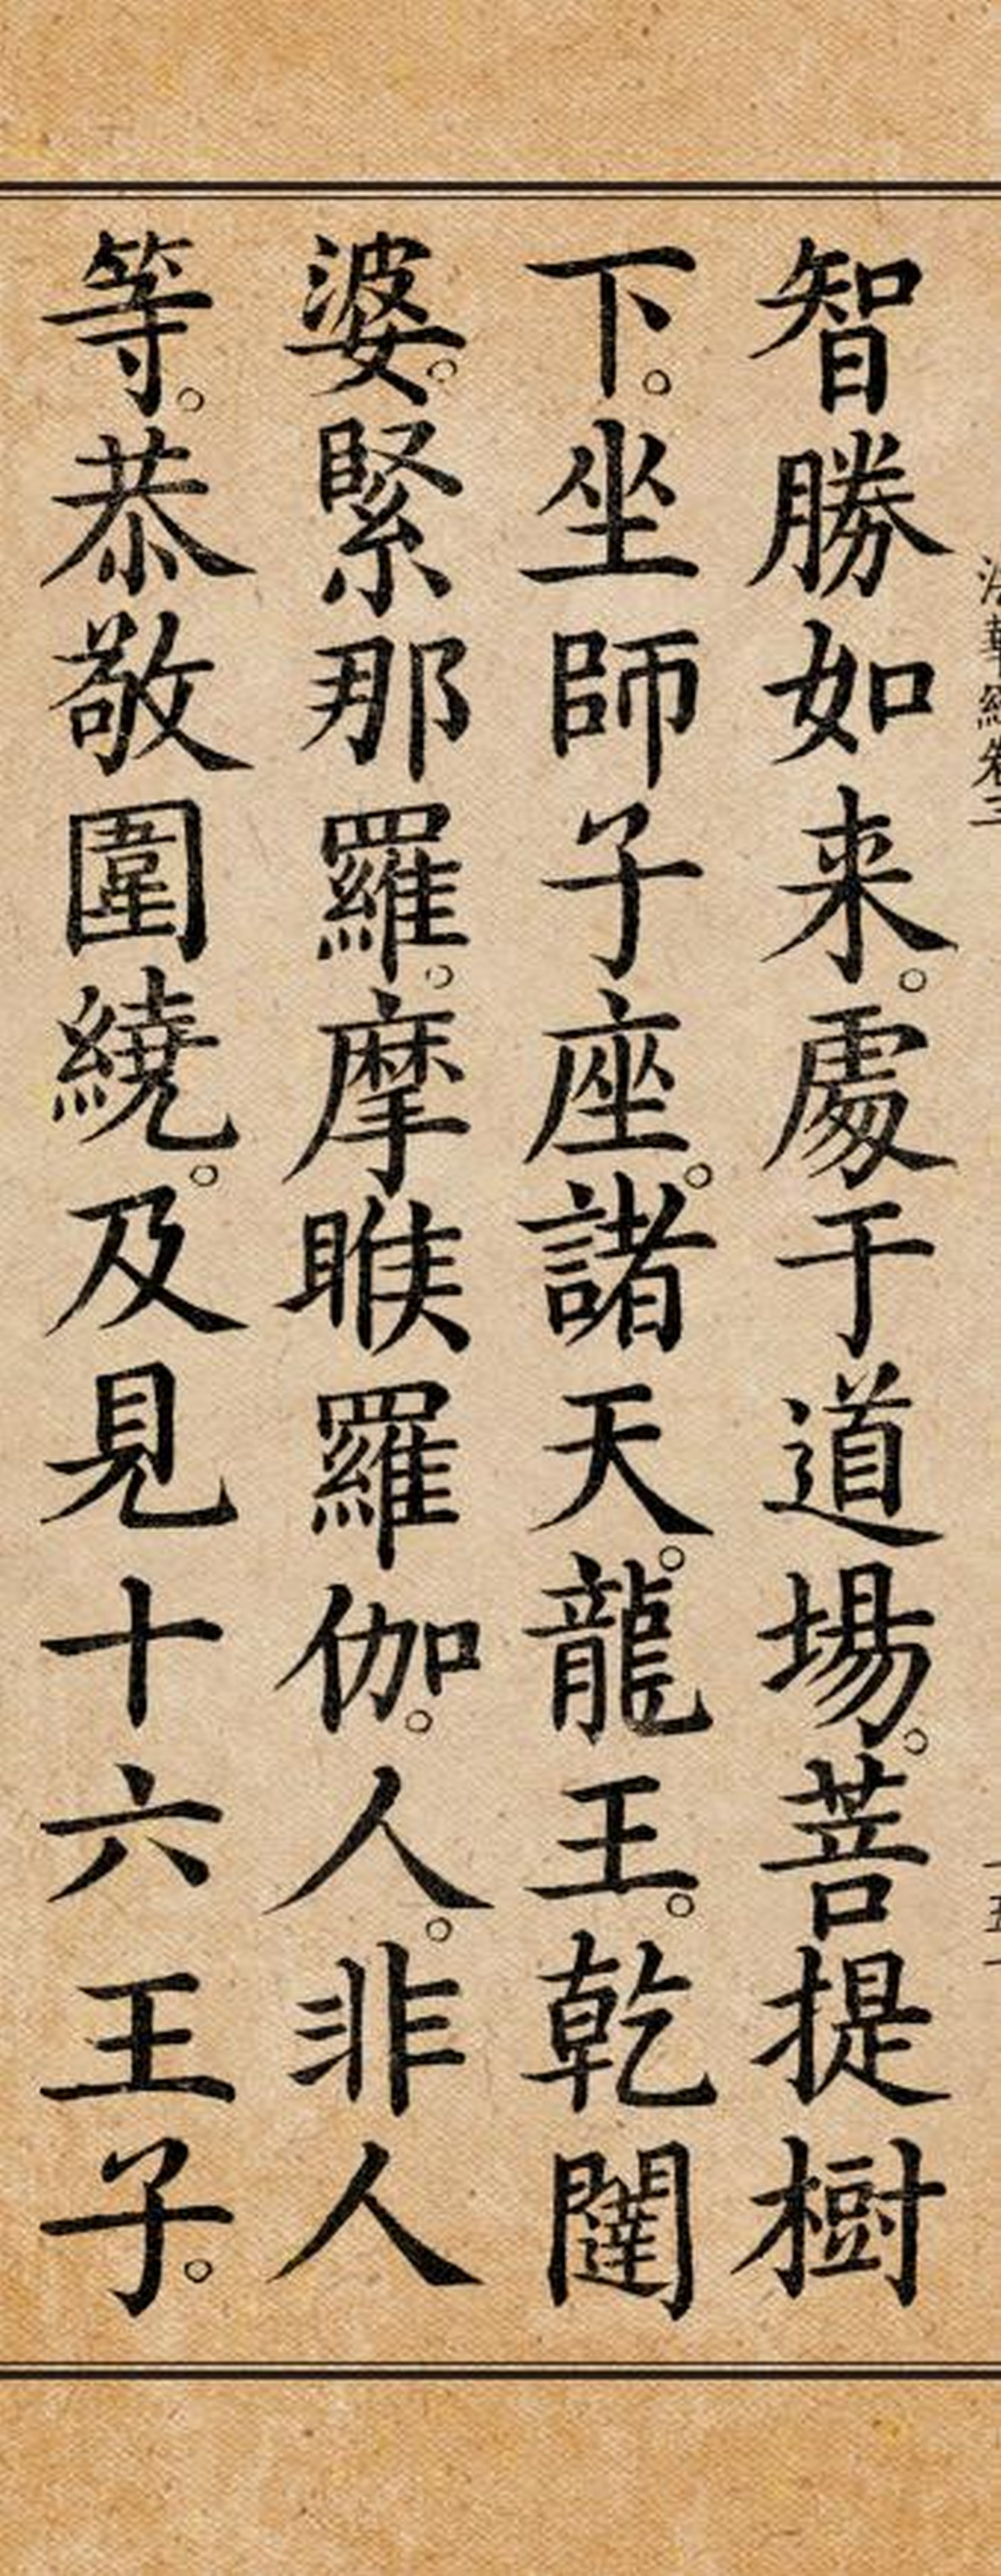 智勝如来。處于道場。菩提樹
下。坐師子座。諸天。龍王。乾闥
婆。緊那羅。摩睺羅伽。人。非人
等。恭敬圍繞。及見十六王子。